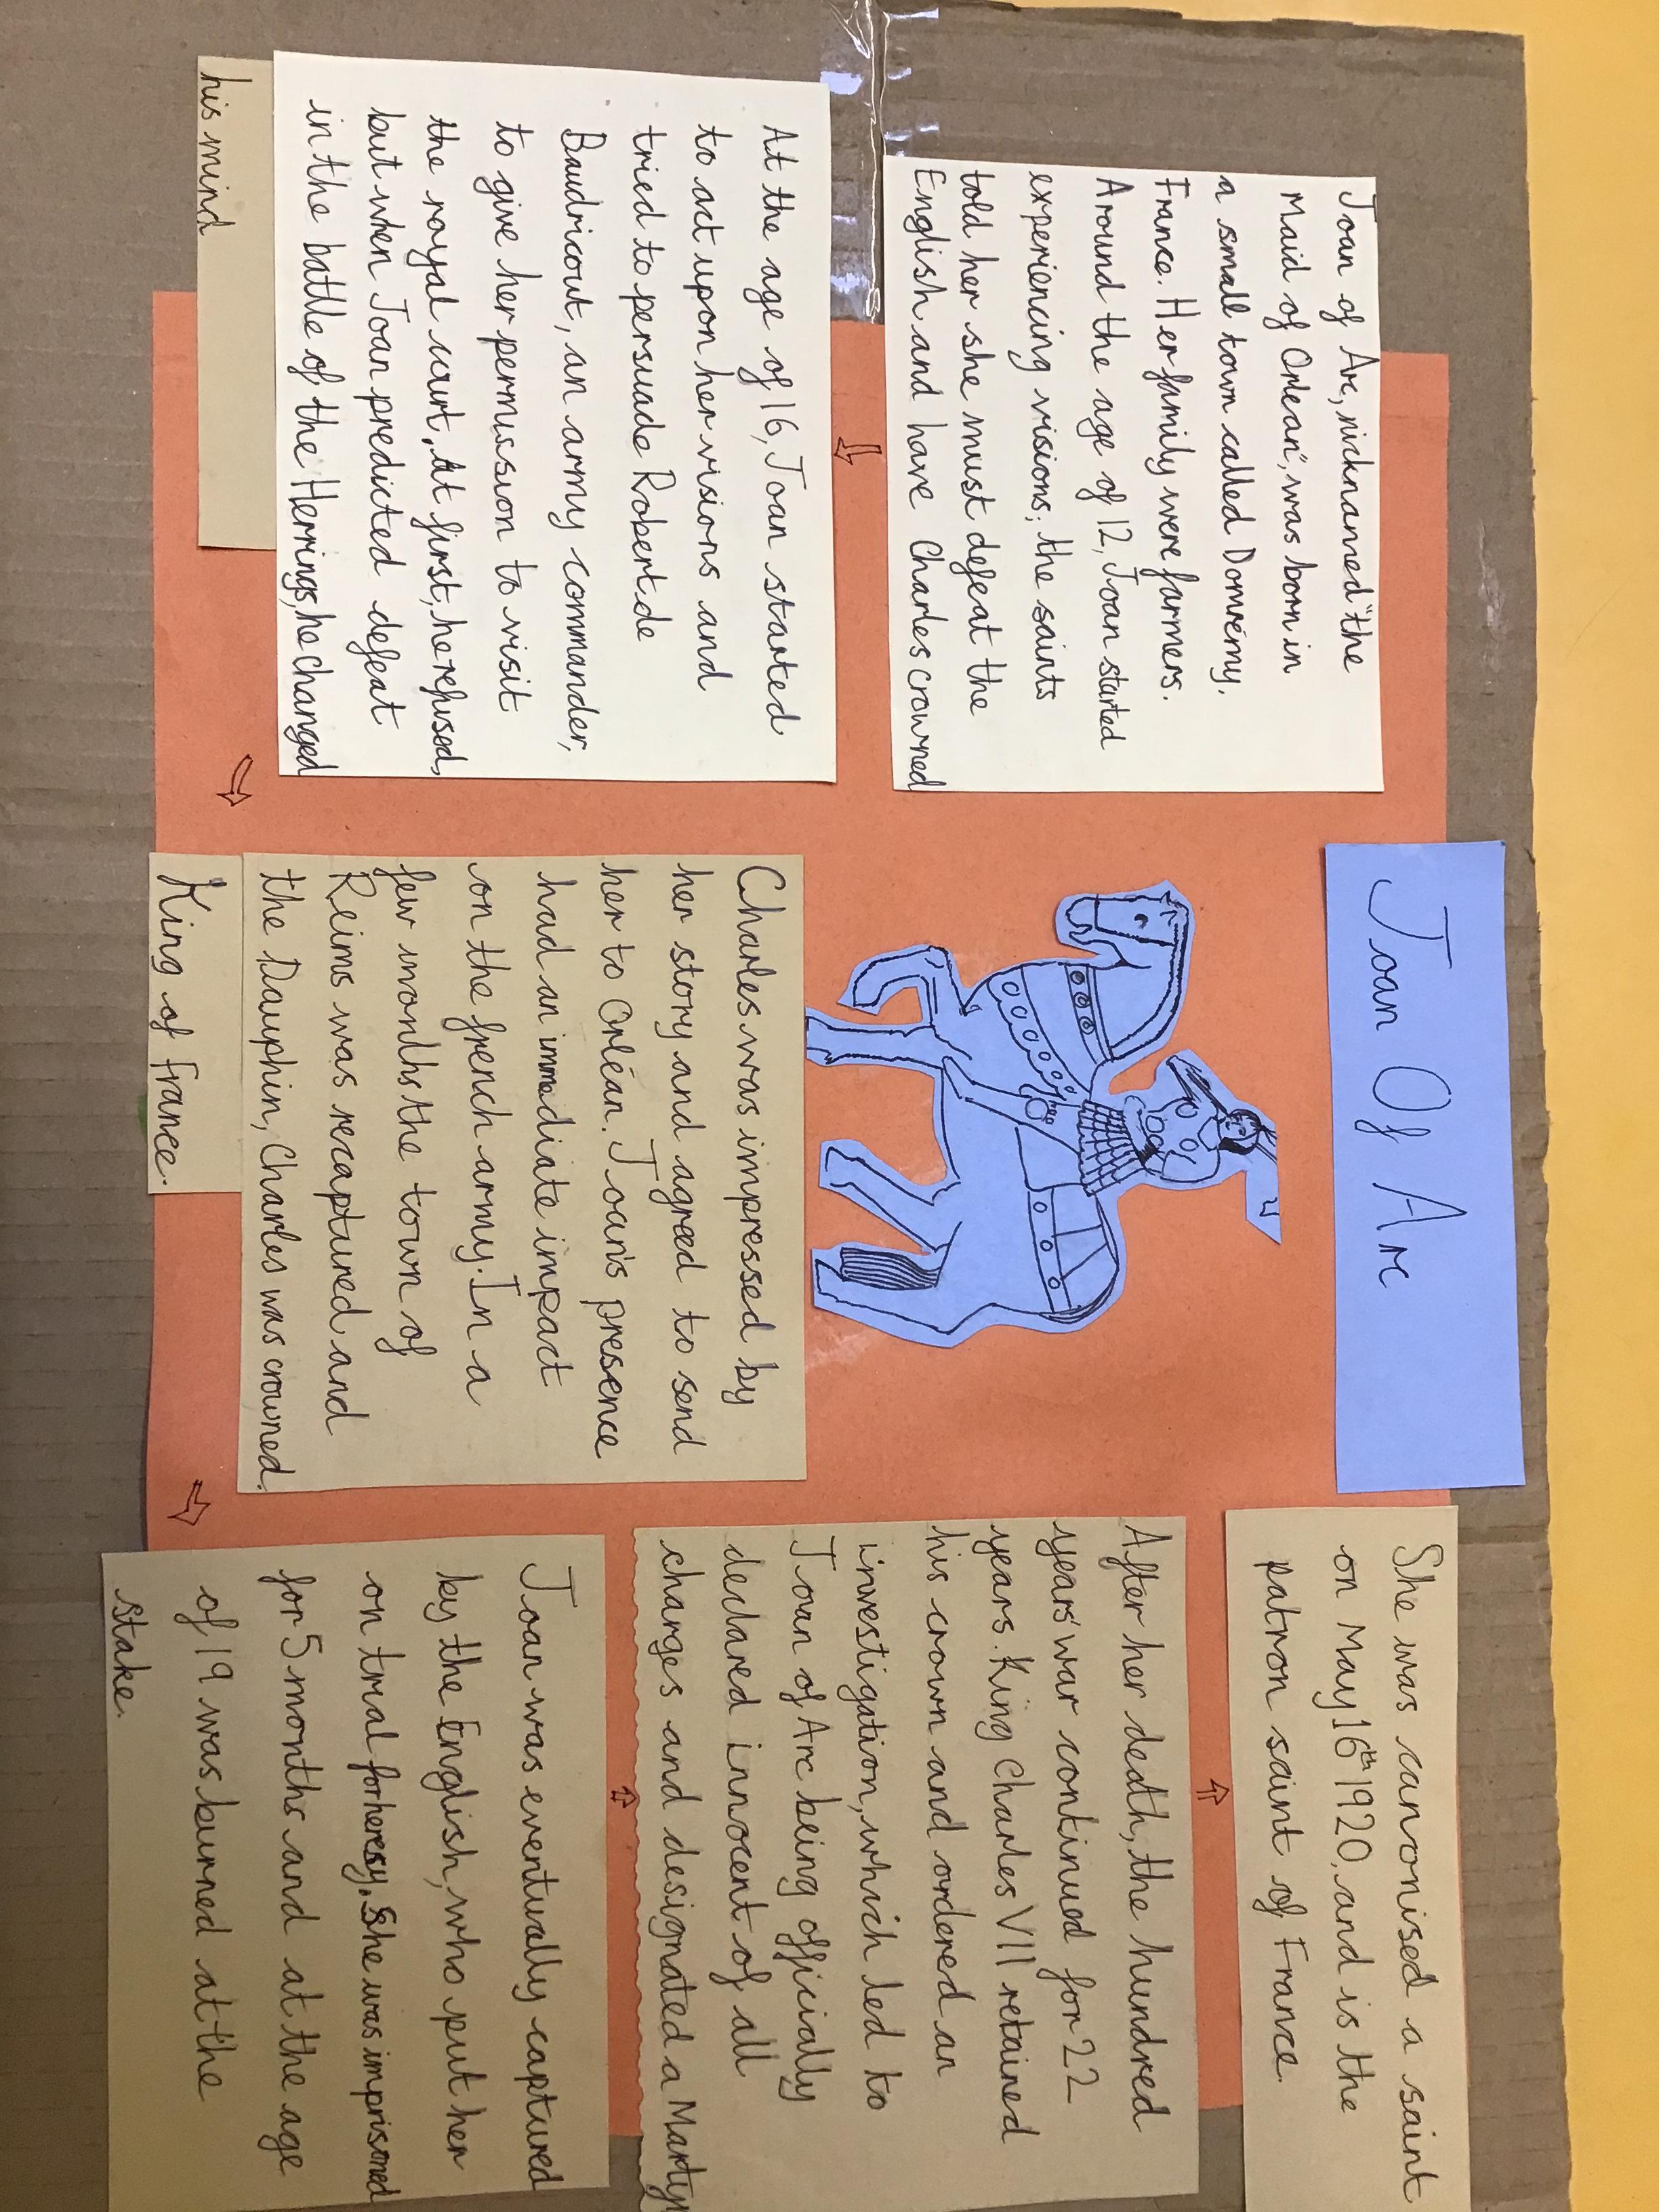 Joan Of Arc
Joan of Arc, nicknamed "the
Maid of Orlean", was born in
a small town called Domrémy,
France. Her family were farmers.
Around the age of 12, Joan started
experiencing visions; the saints
told her she must defeat the
English and have Charles crowned
At the age of 16, Joan started
to act upon her visions and
tried to persuade Robert de
Baudricout, an army commander,
to give her permission to visit
the royal court. At first, he refused,
but when Joan predicted defeat
in the battle of the Herrings, he changed
his mind
Charles was impressed by
her story and agreed to send
her to Orléan. Joan's presence
had an immediate impact
on the french army. In a
few months the town of
Reims was recaptured and
the Dauphin, Charles was crowned.
King of France.
Joan was eventually captured
by the English, who put her
on trial for heresy. She was imprisoned
for 5 months and at the age
of 19 was burned at the
stake.
After her death, the hundred
years' war continued for 22
years. King Charles VII retained
his crown and ordered an
investigation, which led to
Joan of Arc being officially
declared innocent of all
charges and designated a Martyr
She was canonised a saint
on May 16th 1920, and is the
patron saint of France.